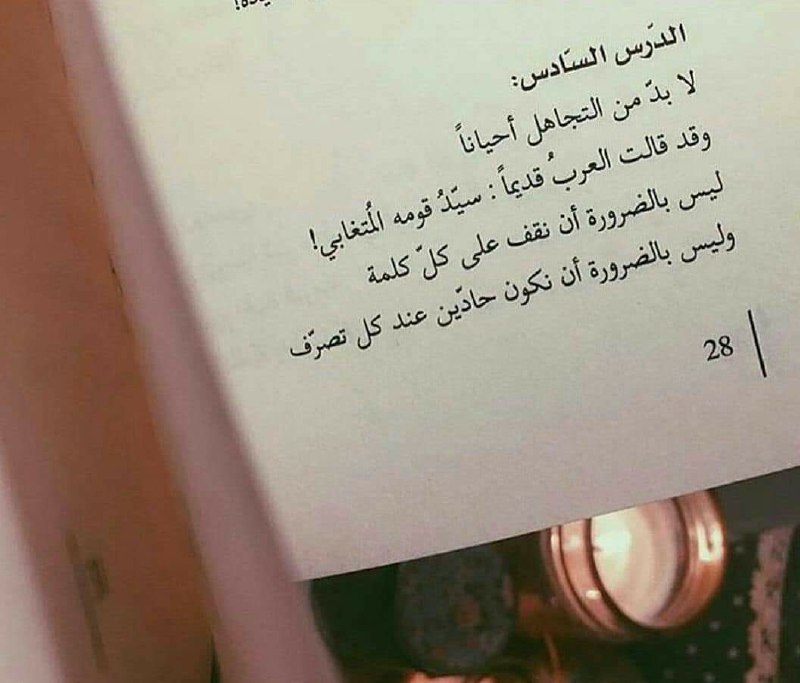 الدّرس السّادس:
لا بدّ من التجاهل أحياناً
وقد قالت العربُ قديماً: سيّدُ قومه المُتغابي!
ليس بالضرورة أن نقف على كلّ كلمة
وليس بالضرورة أن نكون حادّين عند كل تصرّف
28